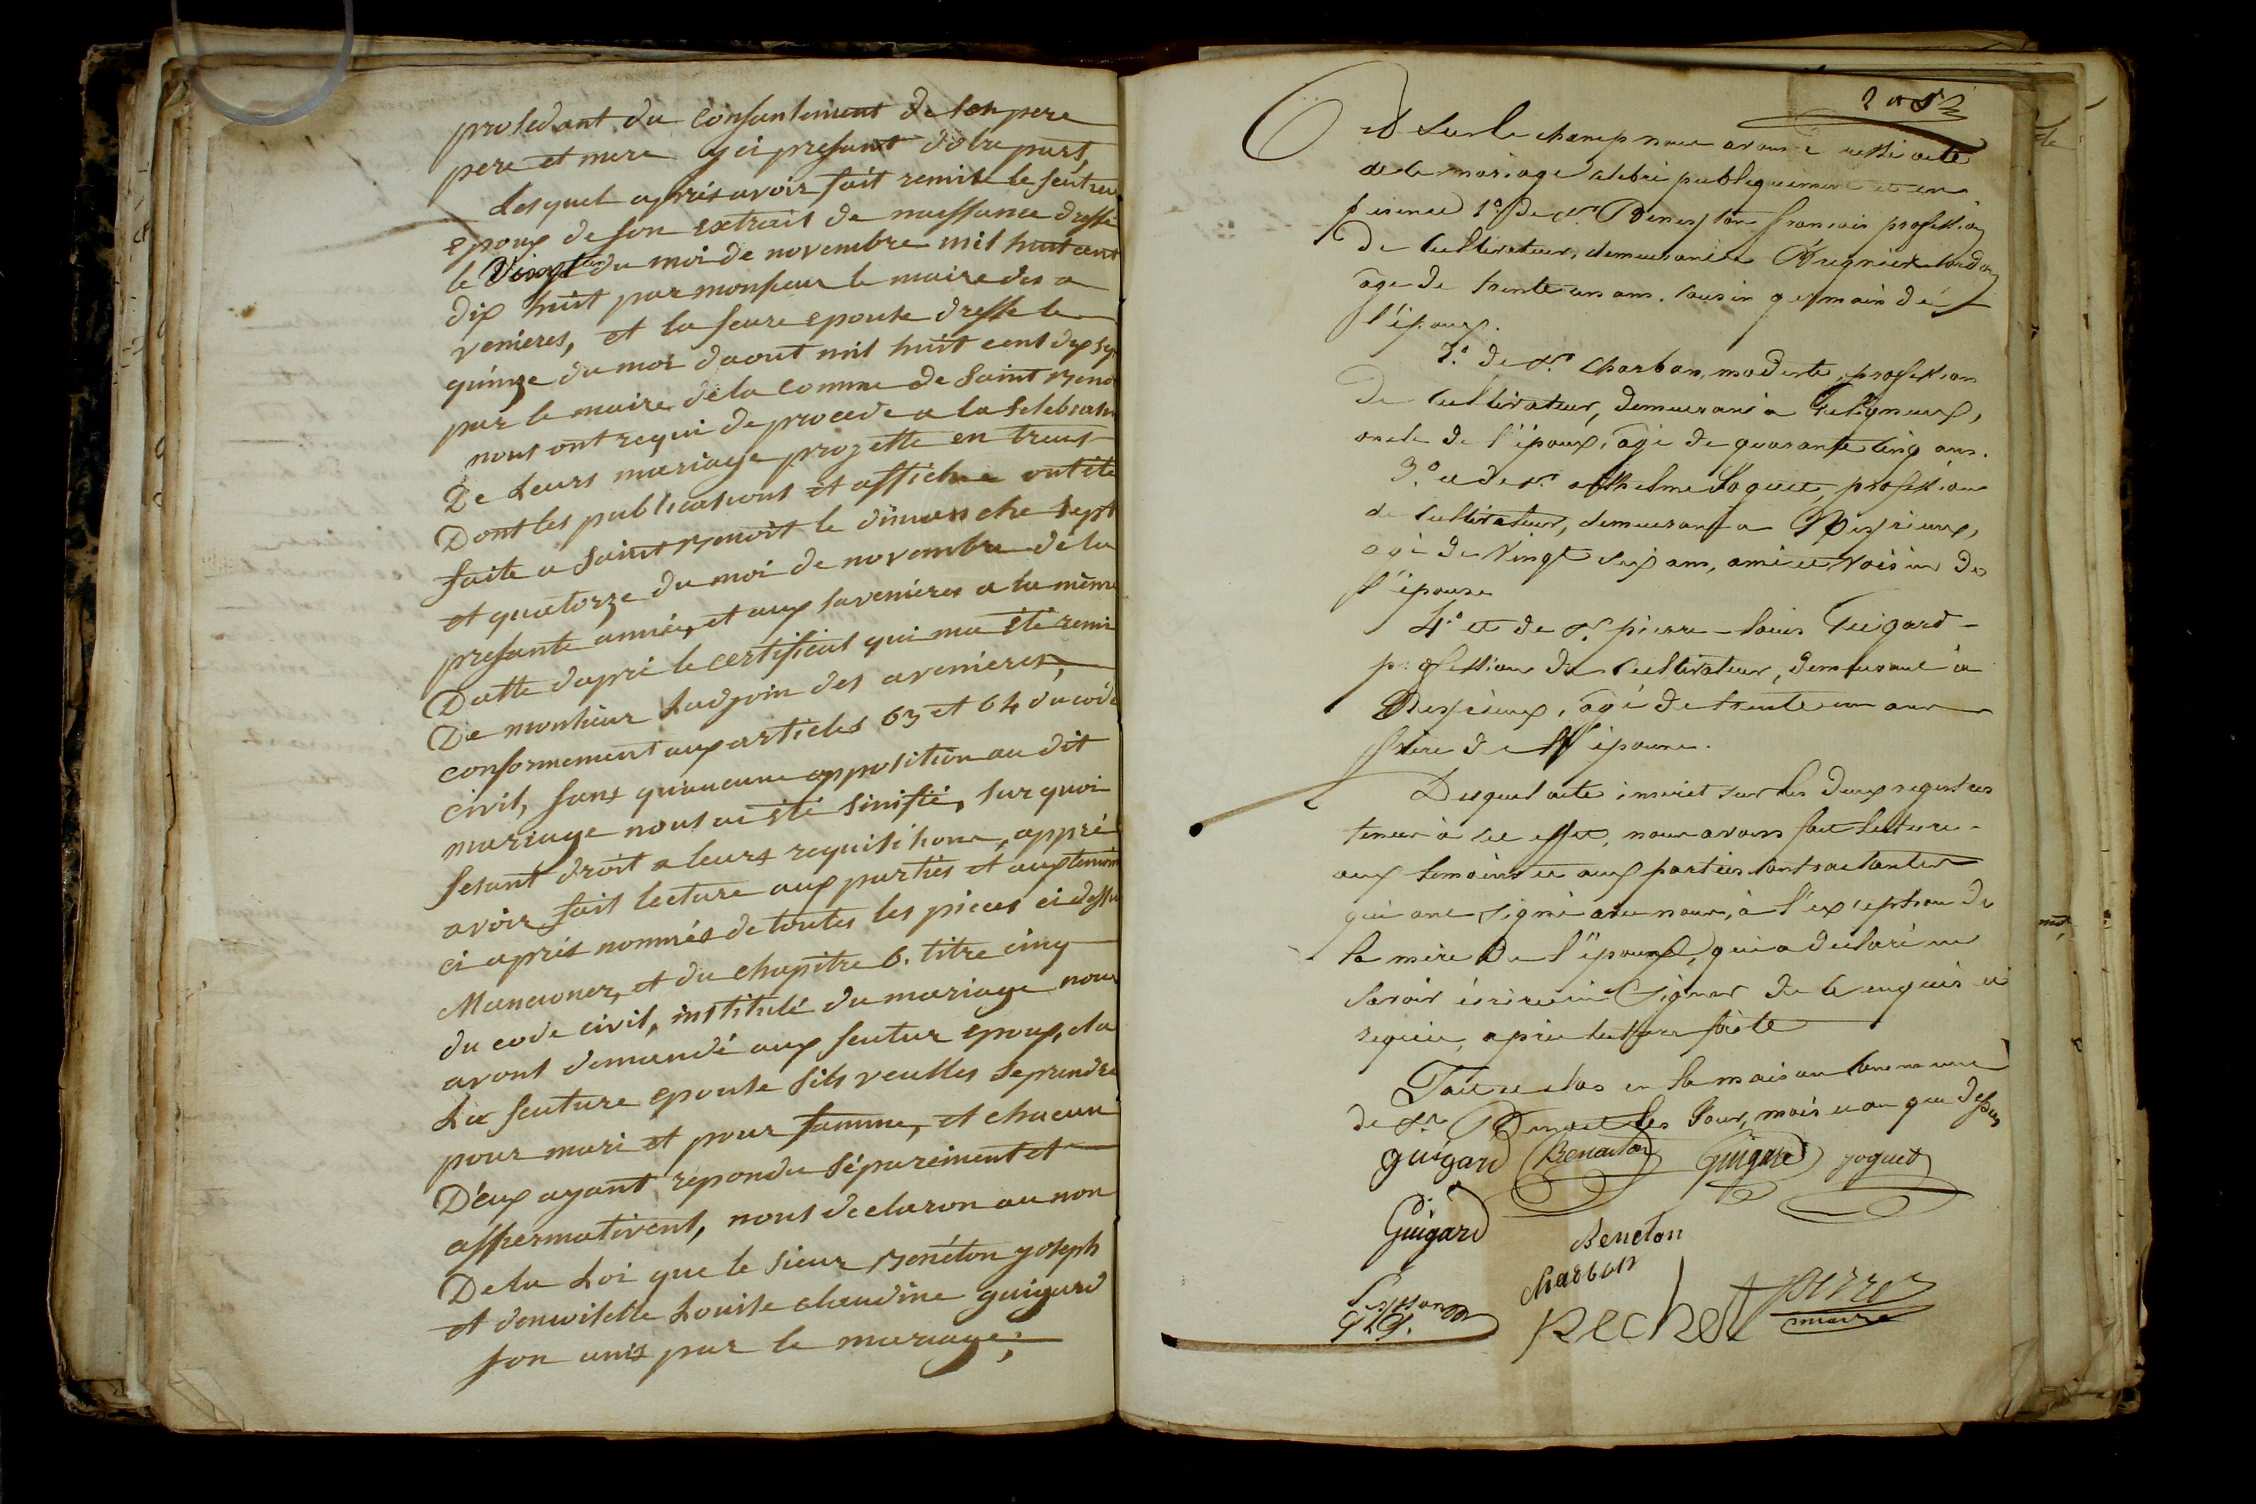 procedant du consantement de son pere
pere et mere y ci presant d'otre part,
Lesquel aprés avoir fait remise le feutur
epoux de son extrait de naissance dressé
le Vingt un du moi de novembre mil huit cent
dix huit par monsieur le maire des a
venieres, et la feuture epouse dresse le
quinze du moi daout mil huit cent dix sept
par le maire de la comune de Saint Benoit
nous ont requi de procede a la selebration
De Leurs mariage projetté en treus
Dont les publications et affiche ont été
faite a Saint Benoit le dimanche sept
et quatorze du moi de novembre de la
presante année, et aux savenieres a la même
Datte dapré le certificat qui ma été remi
De monsieur Ladjoin des avenieres,
conformement aux articles 63 et 64 du code
civil, sans qu'aucune opposition au dit
mariage nous ai été sinifié, sur quoi
fesant droit a leurs requisitions, appré
avoir fait lecture aux partiés et aux temoin
ci aprés nommés de toutes les pieces ci dessu
Mancioner, et du chapitre 6. titre cinq
du code civil, institulé du mariage nous
avont demandé aux feutur epoux, et a
La feuture epouse sils veulles se prendre
pour mari et pour famme, et chacun
D'eux ayant repondu séparément et
affermativent, nous declaron au non
De la Loi que le sieur Benéton yoseph
et demoiselle Louise claudine guigard
son unis par le mariage;
Et sur le champ nous avons adressé acte
de ce mariage célébré publiquement et en
présence 1º. de Sr. Beneston françois profession
De cultivateur, demeurant à Brégnier Cordon
âgé de trente un ans. cousin germain de
l'époux.
2º. de Sr. Charbon, modeste, profession
De cultivateur, demeurant à Gelignieux,
oncle de l'époux, âgé de quarante cinq ans.
3º. et de Sr. anthelme Joguet, profession
de cultivateur, demeurant a Respieux,
âgé de Vingt six ans, ami et Voisin de
l'épouse
4º et de Sr. pierre-Louis Guigard-
profession de cultivateur, demeurant à
Respieux, âgé de trente un ans
frère de l'épouse.
Duquel acte inscrit sur les deux registres
tenus à cet effet, nous avons fait lecture-
aux témoins et aux parties contractantes
qui ont signé avec nous, à l'exception de
la mère de l'époux, qui a déclaré ne
savoir écrire ni Signer de ce enquis et
requise, après lecture faite
Fait et clos en la maison commune
de St. Benoit les Jour, mois et an que dessus
guigard Beneton Guigard joguet
Guigard Beneton
charbon
pechet
maire